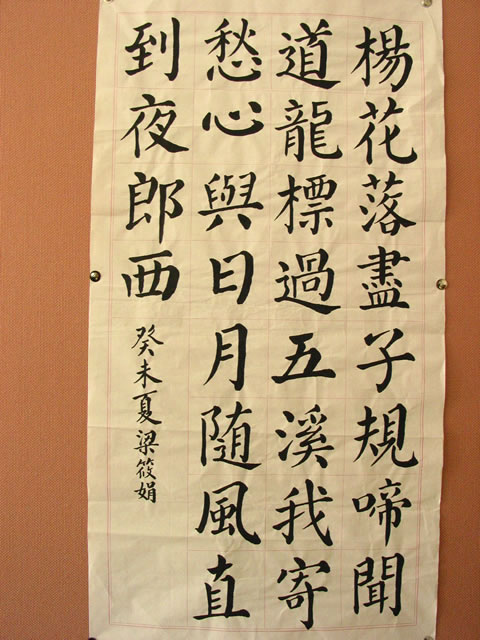 楊花落盡子規啼聞
道龍標過五溪我寄
愁心與日月隨風直
到夜郎西
癸未夏梁筱娟